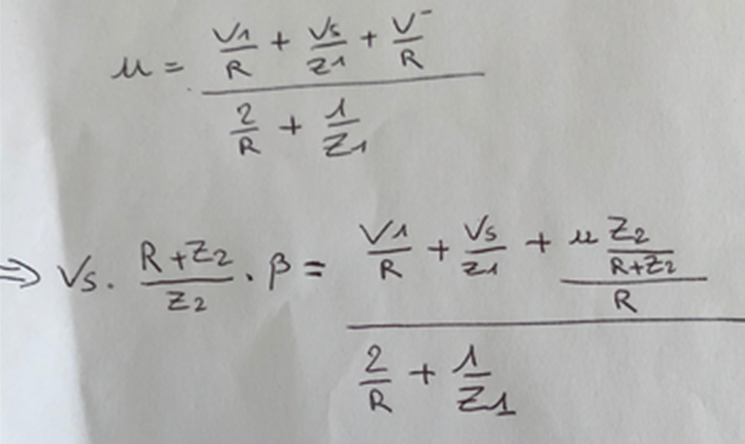 u = (V1/R + Vs/Z1 + V⁻/R) / (2/R + 1/Z1)
⇒ Vs. (R+Z2)/Z2 . β = (V1/R + Vs/Z1 + (u Z2/(R+Z2))/R) / (2/R + 1/Z1)